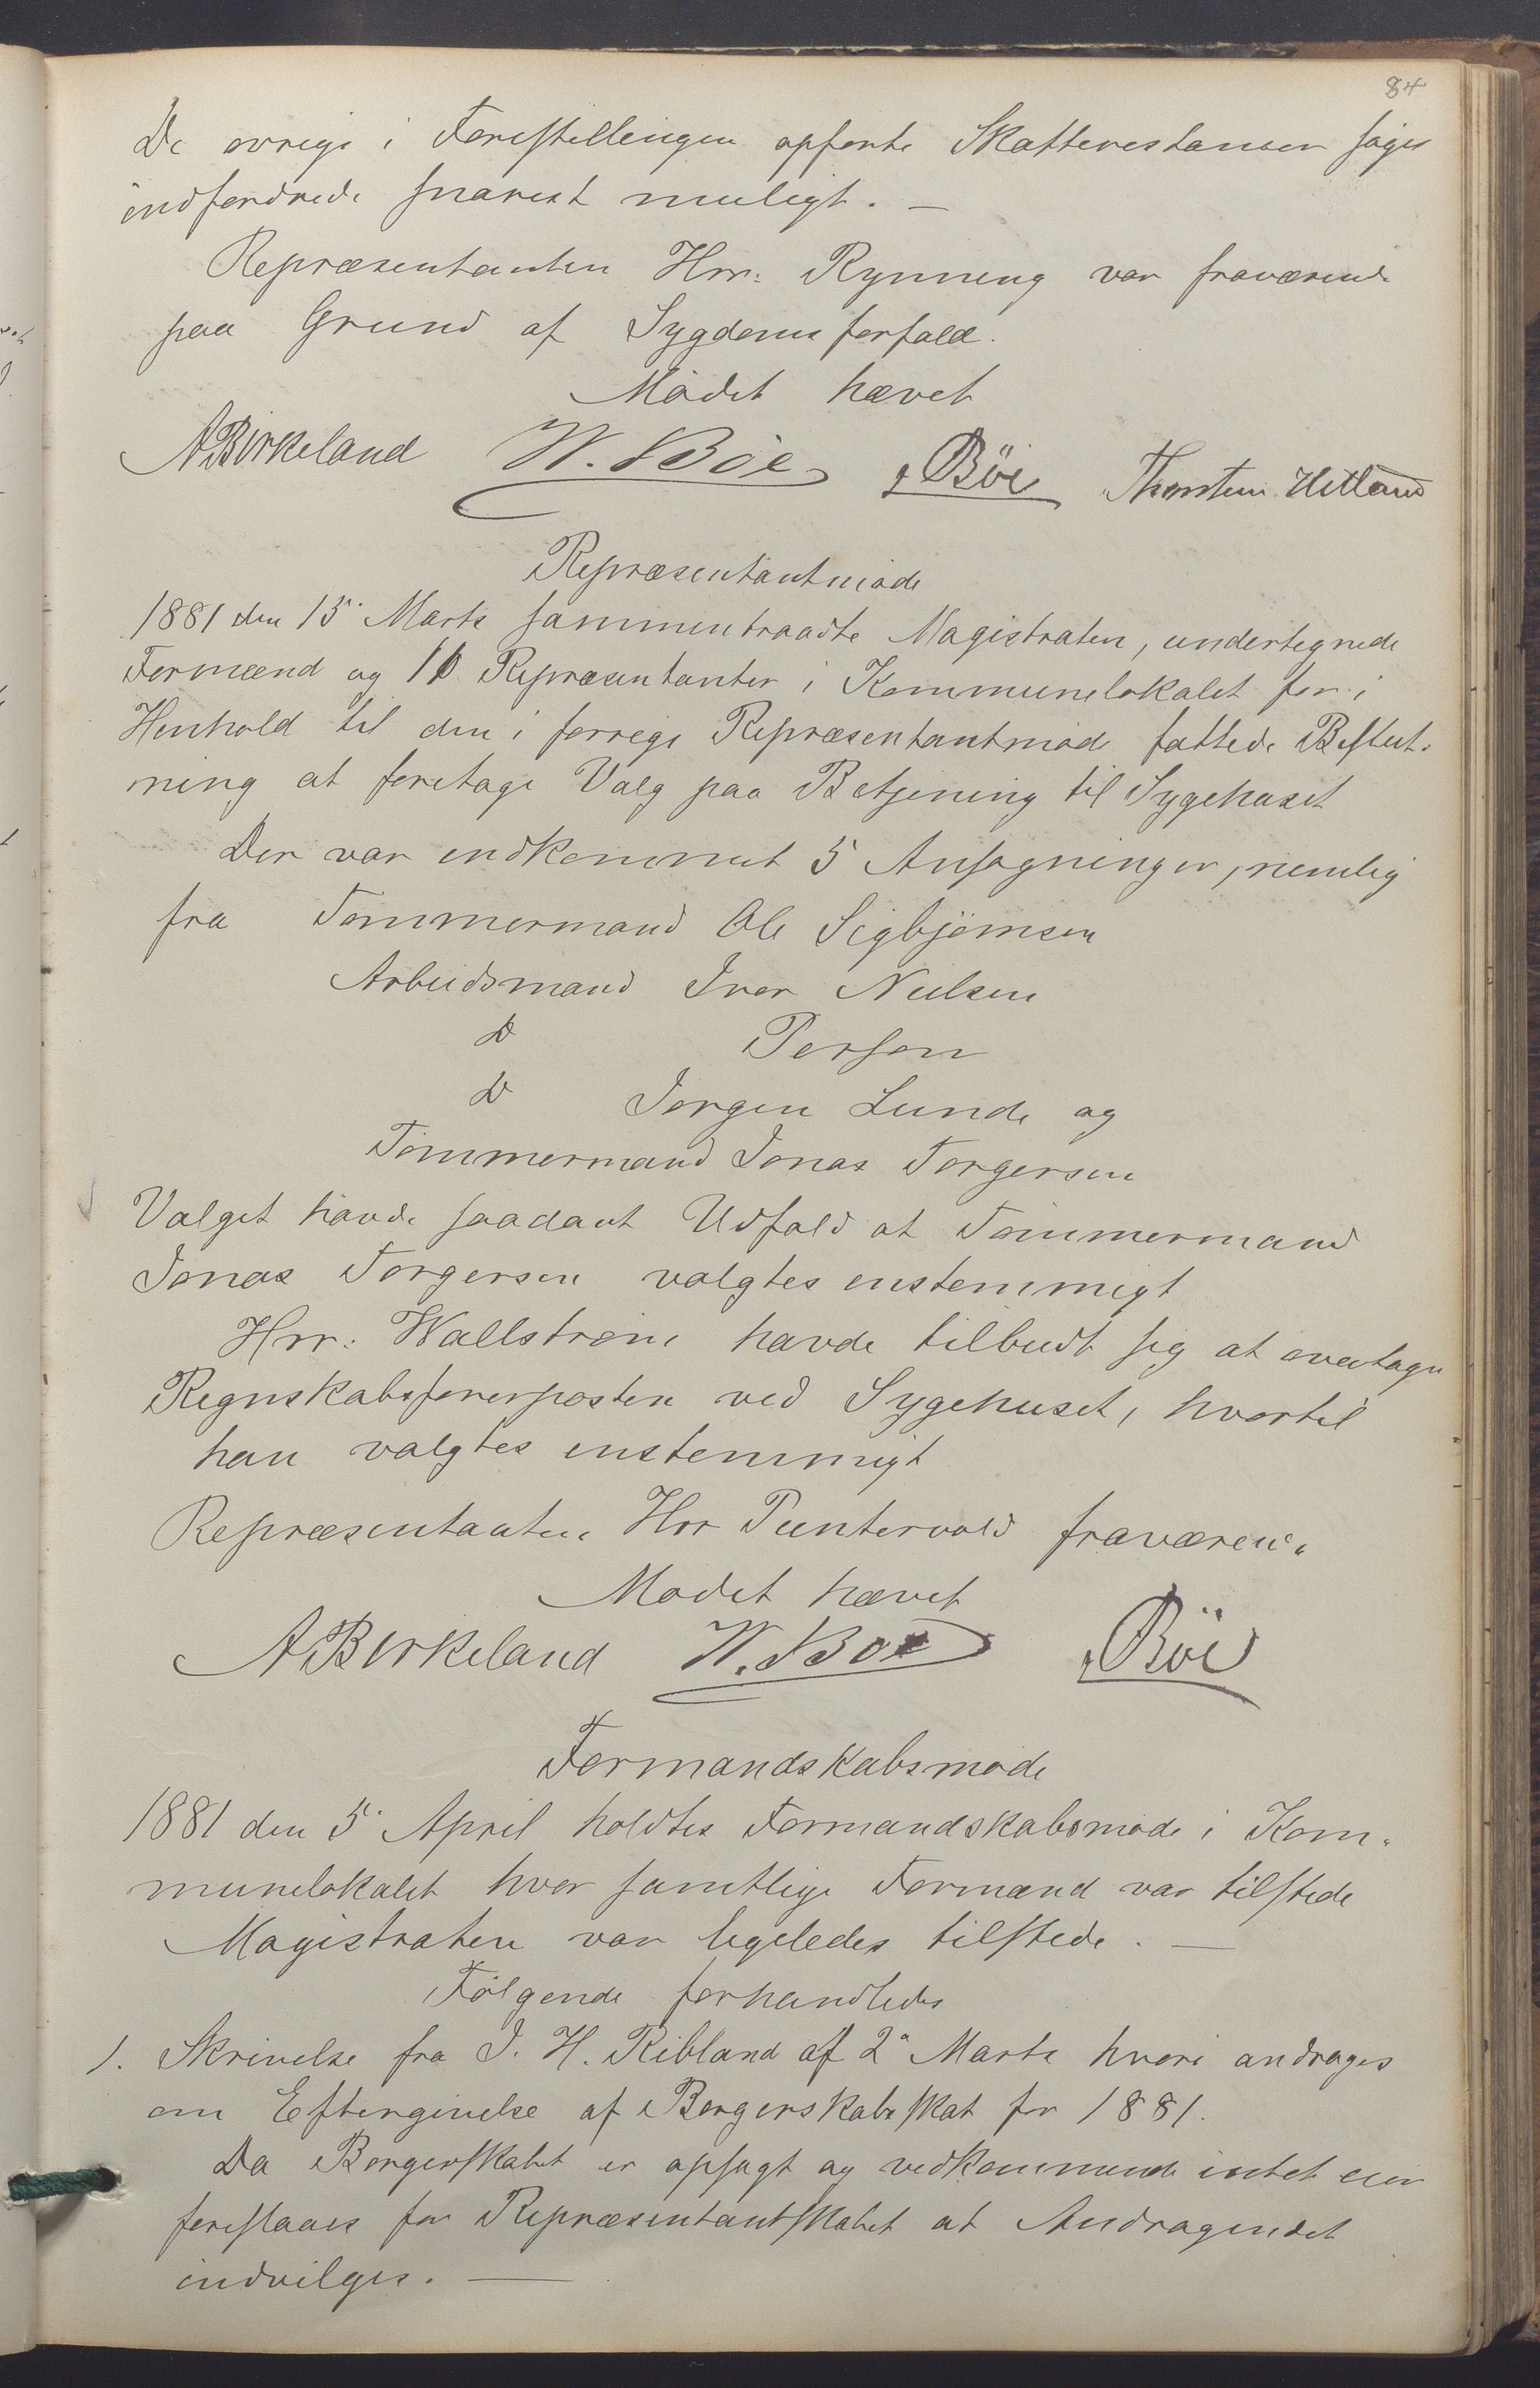 84
De øvrige i Forestillingen opførte Skatterestancer søges
indfordrede snarest muligt. —
Repræsentanten Hrr: Rynning var fraværende
paa Grund af Sygdomsforfald.
Mödet hævet
ABirkeland W. Böe Böe Thorsten Hetland
Repræsentantmöde
1881 den 15' Marts sammentraadte Magistraten, undertegnede
Formænd og 10 Repræsentanter i Kommunelokalet for i
Henhold til den i forrige Repræsentantmöde fattede Beslut-
ning at foretage Valg paa Betjening til Sygehuset
Der var indkommet 5 Ansøgninger, nemlig
fra Tømmermand Ole Sigbjörnsen
Arbeidsmand Iver Nielsen
Do Person
Do Jørgen Lunde og
Tömmermand Jonas Torgersen
Valget havde saadant Udfald at Tömmermand
Jonas Torgersen valgtes enstemmigt
Hrr: Wallstrøm havde tilbudt sig at overtage
Regnskabsførerposten ved Sygehuset, hvortil
han valgtes enstemmigt
Repræsentanten Hrr Puntervold fraværende
Mødet hævet
ABirkeland W. Böe Böe
Formandskabsmøde
1881 den 5' April holdtes Formandskabsmøde i Kom-
munelokalet hvor samtlige Formænd var tilstede
Magistraten var ligeledes tilstede. —
Følgende forhandledes
1. Skrivelse fra J. H. Ribland af 2' Marts hvori andrages
om Eftergivelse af Borgerskabsskat for 1881.
Da Borgerskabet er opsagt og vedkommende intet eier
foreslaaes for Repræsentantskabet at Andragendet
indvilges. —